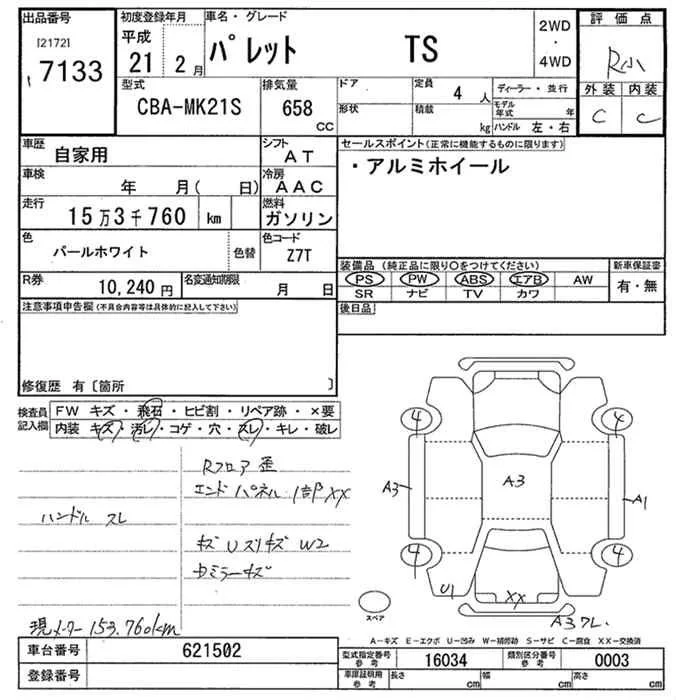 出品番号
[2172]
7133
初度登録年月
平成
21 2月
車名・グレード
パレット TS
2WD
・
4WD
評価点
R小
外装 内装
C C
型式
CBA-MK21S
排気量
658
CC
ドア
形状
定員
4人
積載
kg
ディーラー・並行
モデル年式 年
ハンドル 左・右
車歴
自家用
シフト
AT
セールスポイント(正常に機能するものに限ります)
・アルミホイール
車検
年 月( 日)
冷房
AAC
走行
15万3千760 km
燃料
ガソリン
色
パールホワイト
色替
色コード
Z7T
装備品(純正品に限り○をつけてください)
PS PW ABS エアB AW
SR ナビ TV カワ
新車保証書
有・無
R券
10,240円
名変通知期限
月 日
後日品
注意事項申告欄(不具合内容等は具体的に記入して下さい)
修復歴 有〔箇所 〕
検査員記入欄
FW キズ・飛石・ヒビ割・リペア跡・×要
内装 キズ・汚レ・コゲ・穴・スレ・キレ・破レ
Rフロア 歪
エンドパネル 1部XX
ハンドル スレ
キズ Uズリキズ W2
ミラーキズ
現メーター 153.760km
4 4
A3 A3 A1
4 4
U1 XX
スペア
A3フレ.
A-キズ E-エクボ U-凹み W-補修跡 S-サビ C-腐食 XX-交換済
車台番号
621502
登録番号
型式指定番号
参考
16034
類別区分番号
参考
0003
車庫証明用
参考
長さ cm
幅 cm
高さ cm